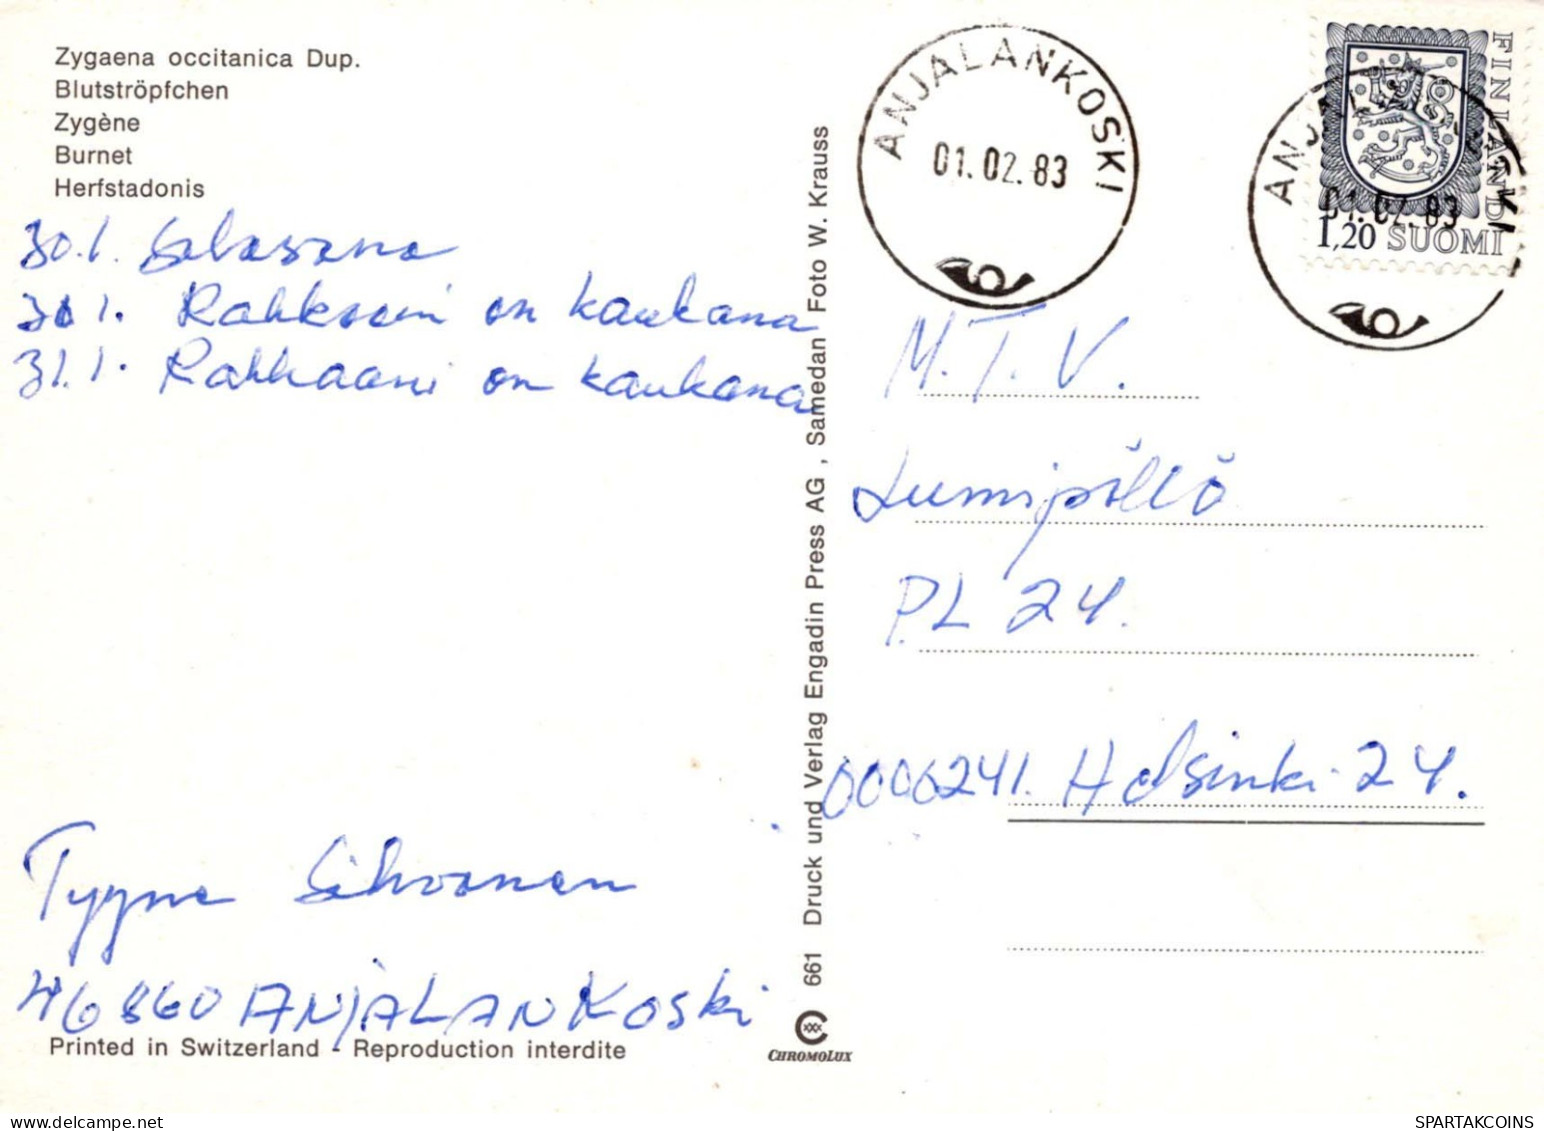 Zygaena occitanica Dup.
Blutströpfchen
Zygène
Burnet
Herfstadonis
30.1. Salasana
30 1. Rakkoein on kaukana
31.1. Rakkaani on kaukana
Tyyne Sihvonen
46860 ANJALANKOSKi
Printed in Switzerland - Reproduction interdite
661 Druck und Verlag Engadin Press AG, Samedan Foto W. Krauss
CHROMOLUX
ANJALANKOSKI
01.02.83
ANJALANKOSKI
01.02.83
FINLAND
1,20 SUOMI
M.T.V.
Lumipöllö
PL 24.
0006241. Helsinki 24.
SPARTAKCOINS